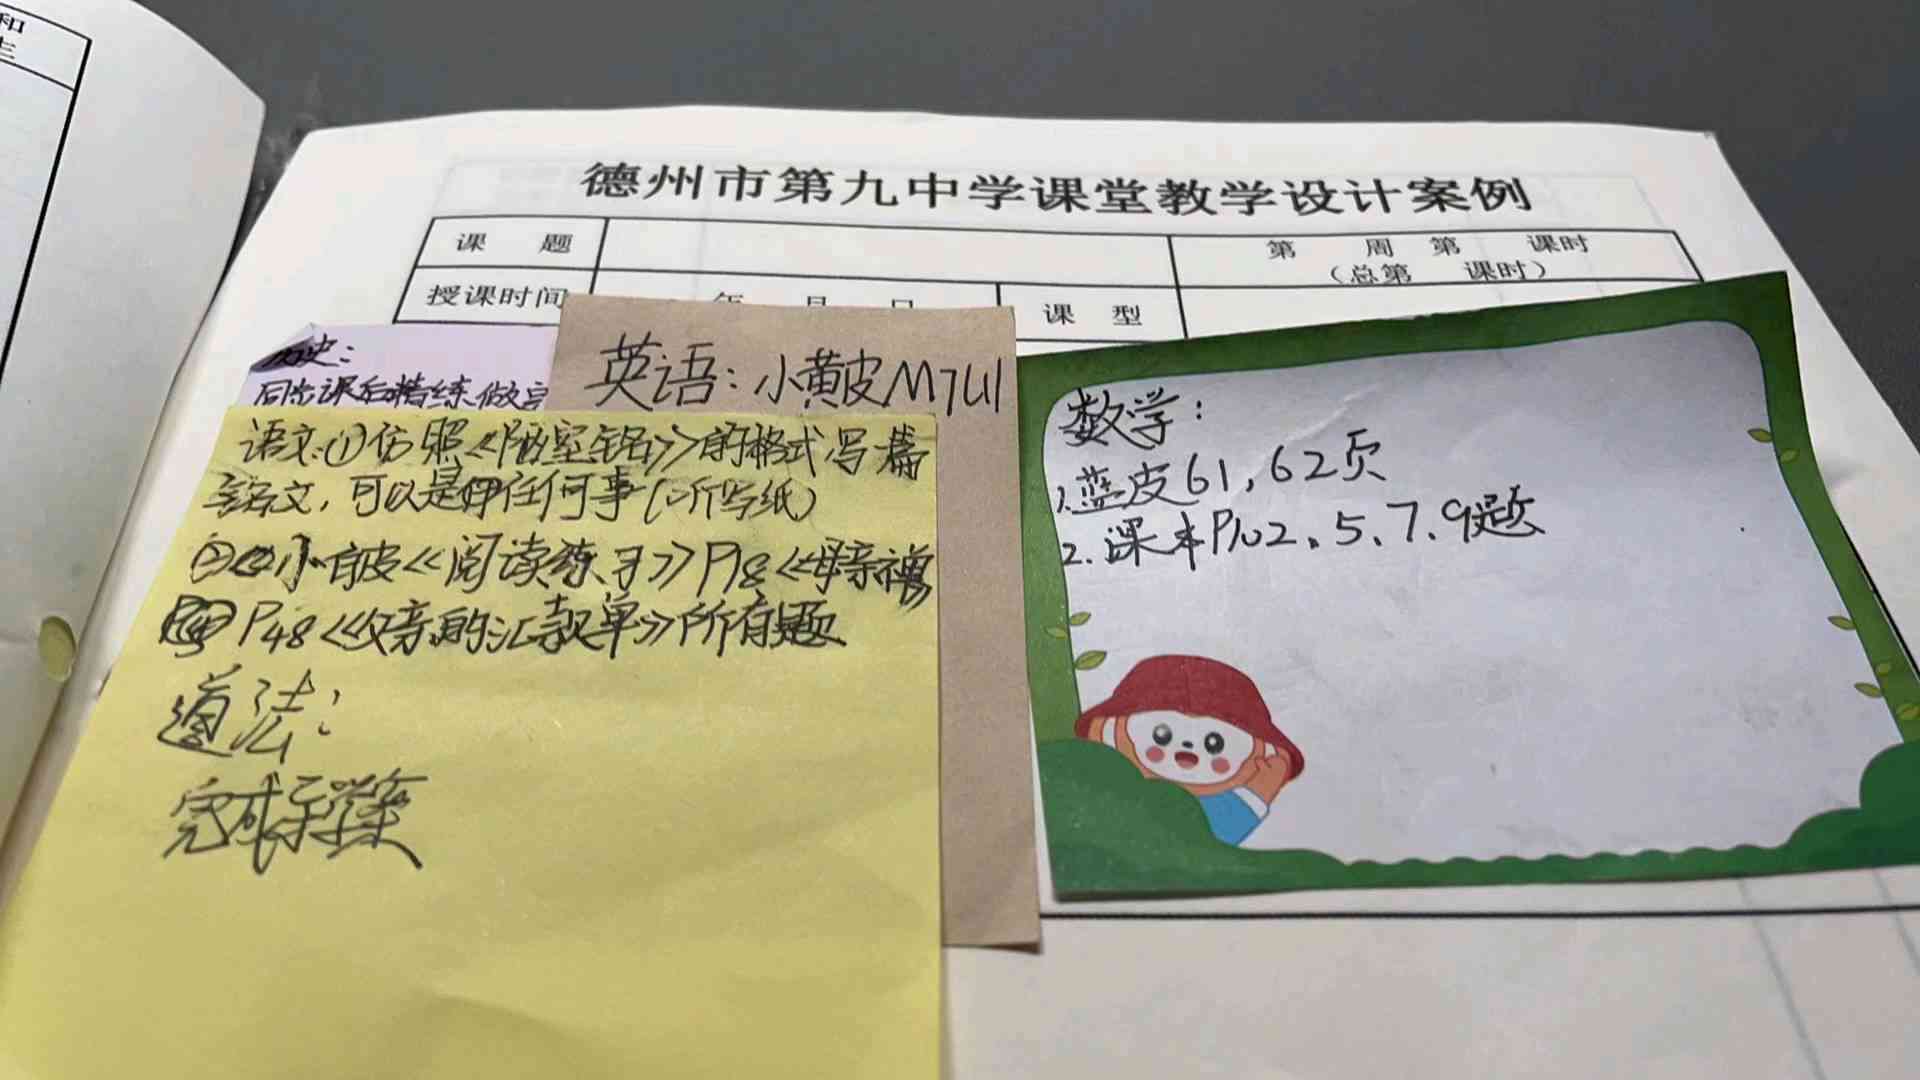 和
德州市第九中学课堂教学设计案例
课 题
第 周 第 课时
(总第 课时)
授课时间
年 月 日
课 型
历史:
同步课后精练做完
英语:小黄皮M7U1
语文:①仿照《陋室铭》的格式写篇
铭文,可以是任何事(听写纸)
②小白皮《阅读练习》P18《母亲
P48《父亲的汇款单》所有题
道法:
完成导学案
数学:
1.蓝皮61,62页
2.课本P102、5、7、9题